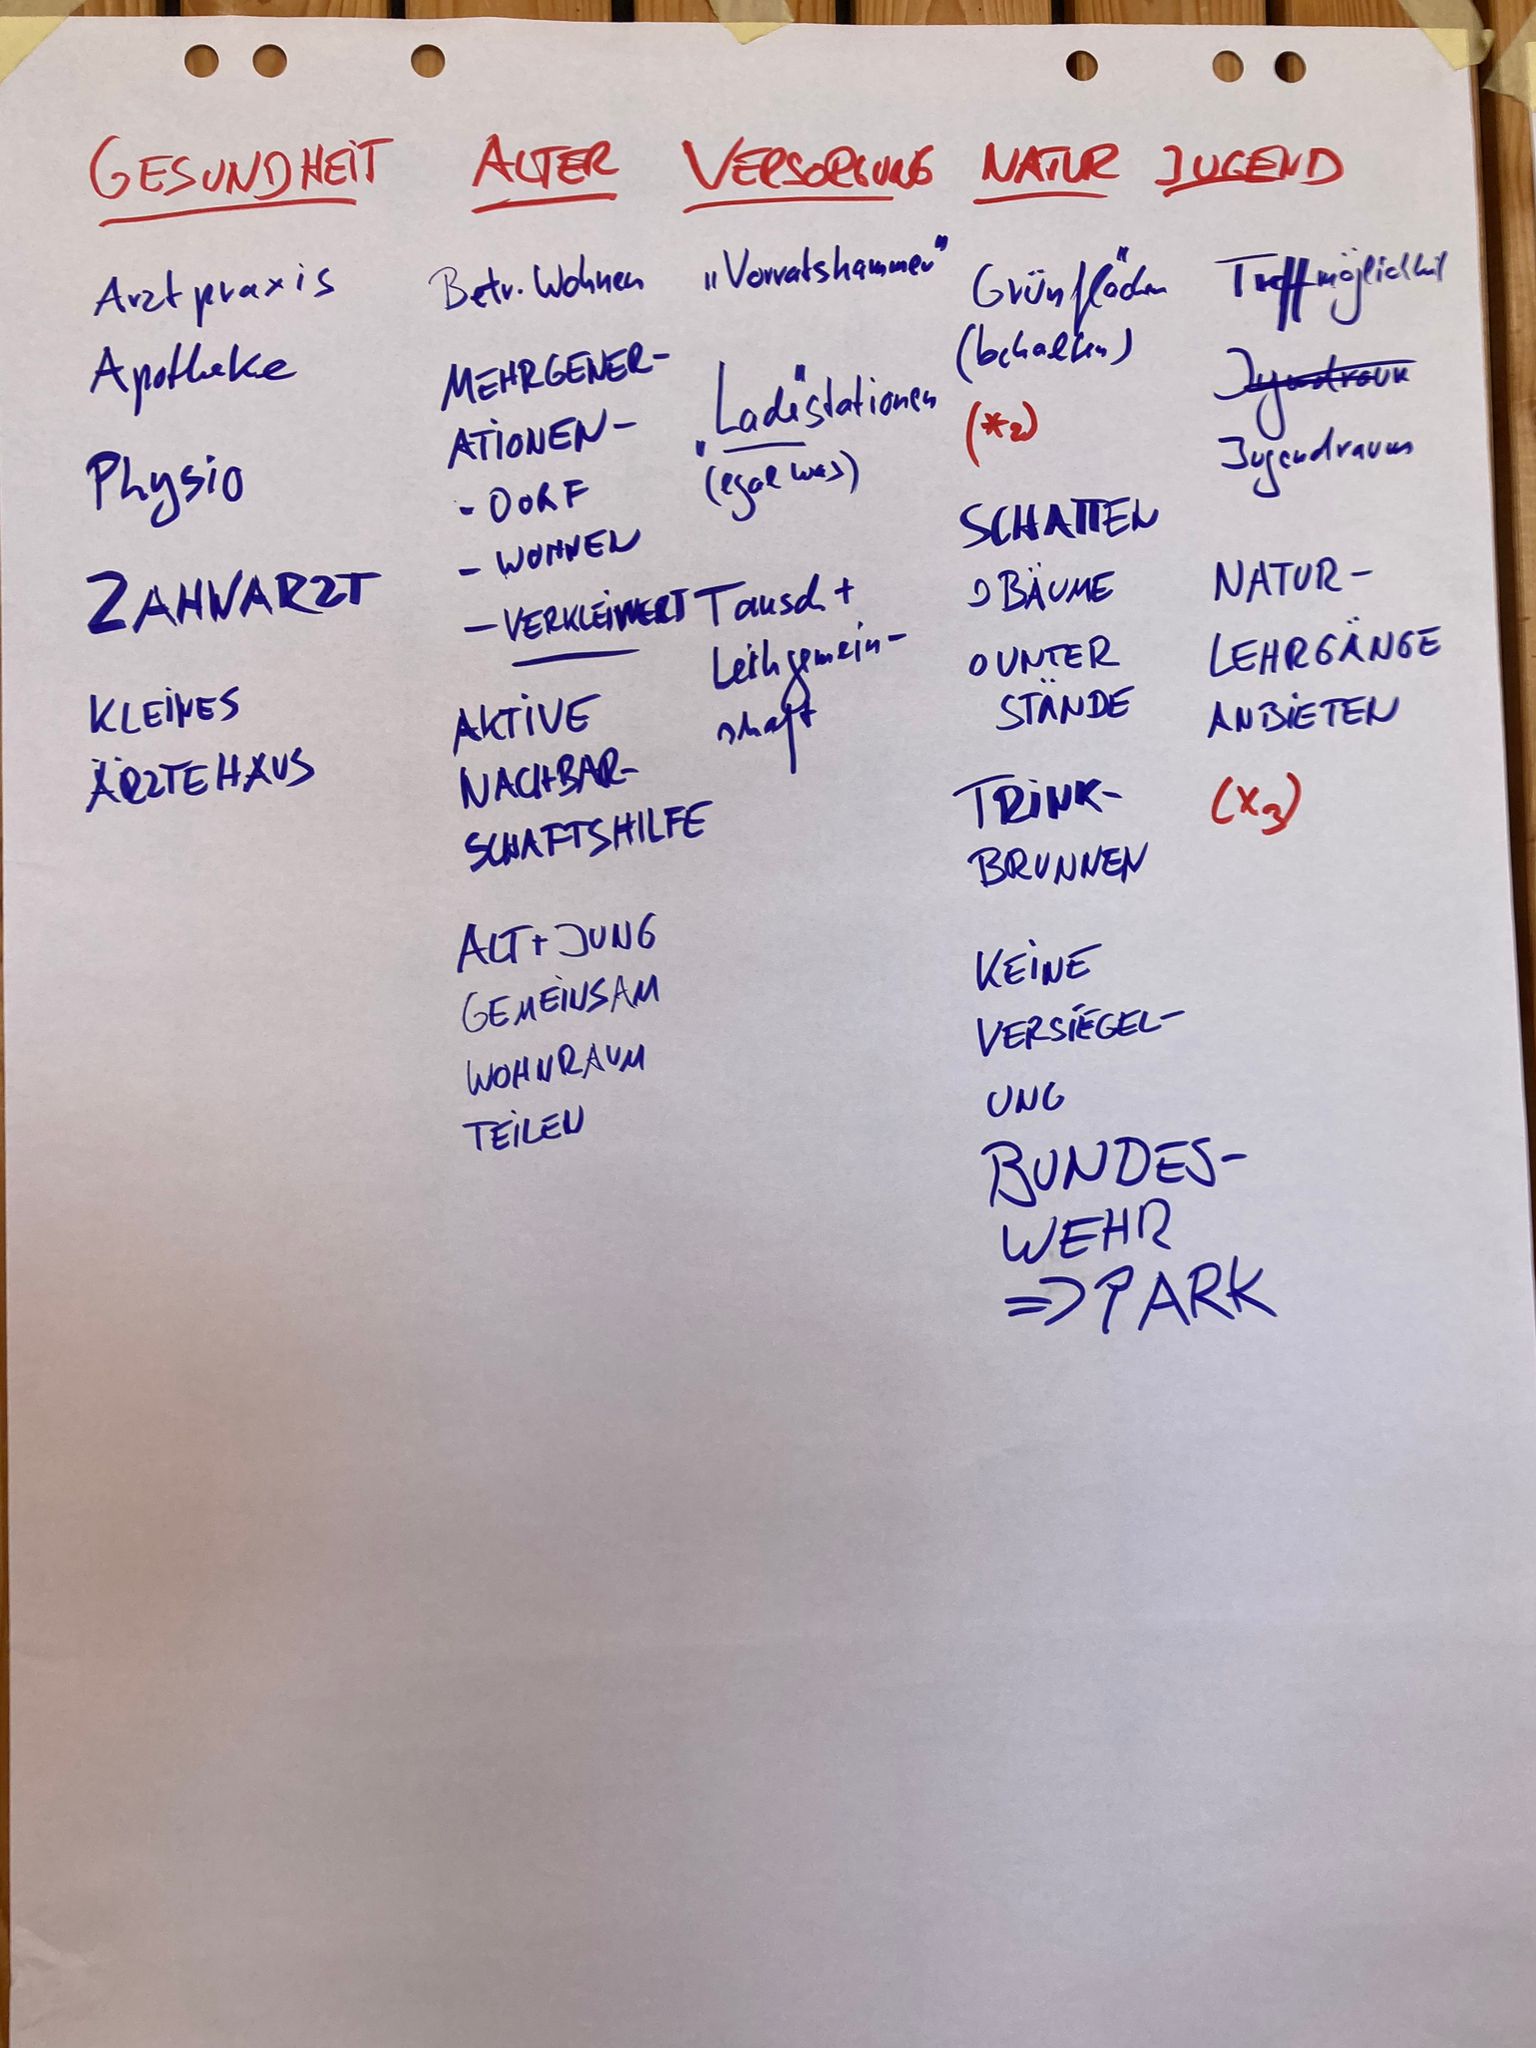 GESUNDHEIT
Arztpraxis
Apotheke
Physio
ZAHNARZT
KLEINES
ÄRZTEHAUS
ALTER
Betr. Wohnen
MEHRGENER-
ATIONEN-
- DORF
- WOHNEN
- VERKLEINERT
AKTIVE
NACHBAR-
SCHAFTSHILFE
ALT + JUNG
GEMEINSAM
WOHNRAUM
TEILEN
VERSORGUNG
„Vorratskammer"
„Lade"stationen
(egal was)
Tausch +
Leihgemein-
schaft
NATUR
Grünflächen
(behalten)
(*2)
SCHATTEN
o BÄUME
o UNTER
STÄNDE
TRINK-
BRUNNEN
KEINE
VERSIEGEL-
UNG
BUNDES-
WEHR
=> PARK
JUGEND
Treffmöglichkeit
Jugendraum
Jugendraum
NATUR-
LEHRGÄNGE
ANBIETEN
(x3)